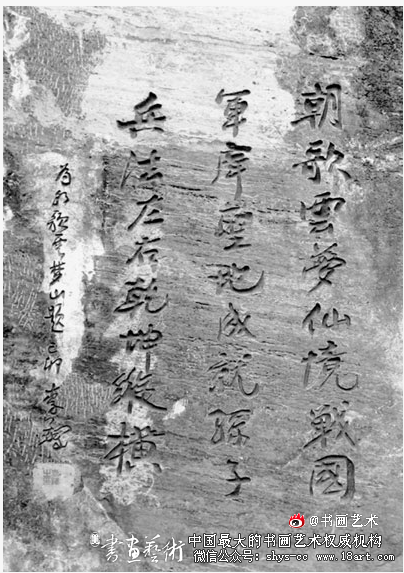 朝歌雲夢仙境戰國
軍庠聖地成就孫子
兵法左右乾坤縱橫
为朝歌雲夢山题 己卯 李鐸
@书画艺术
書畫藝術
中国最大的书画艺术权威机构
微信公众号：shys-cc www.18art.com